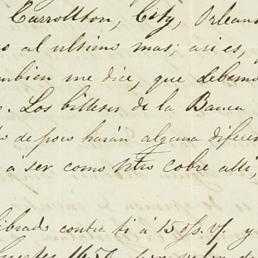 Carrollton, City, Orlean
o al ultimo mas; asi es,
ambien me dice, que debemo
. Los billetes de la Banca
de poco harán alguna diferen
a ser como cobre alli,
librado contra ti á 15 y